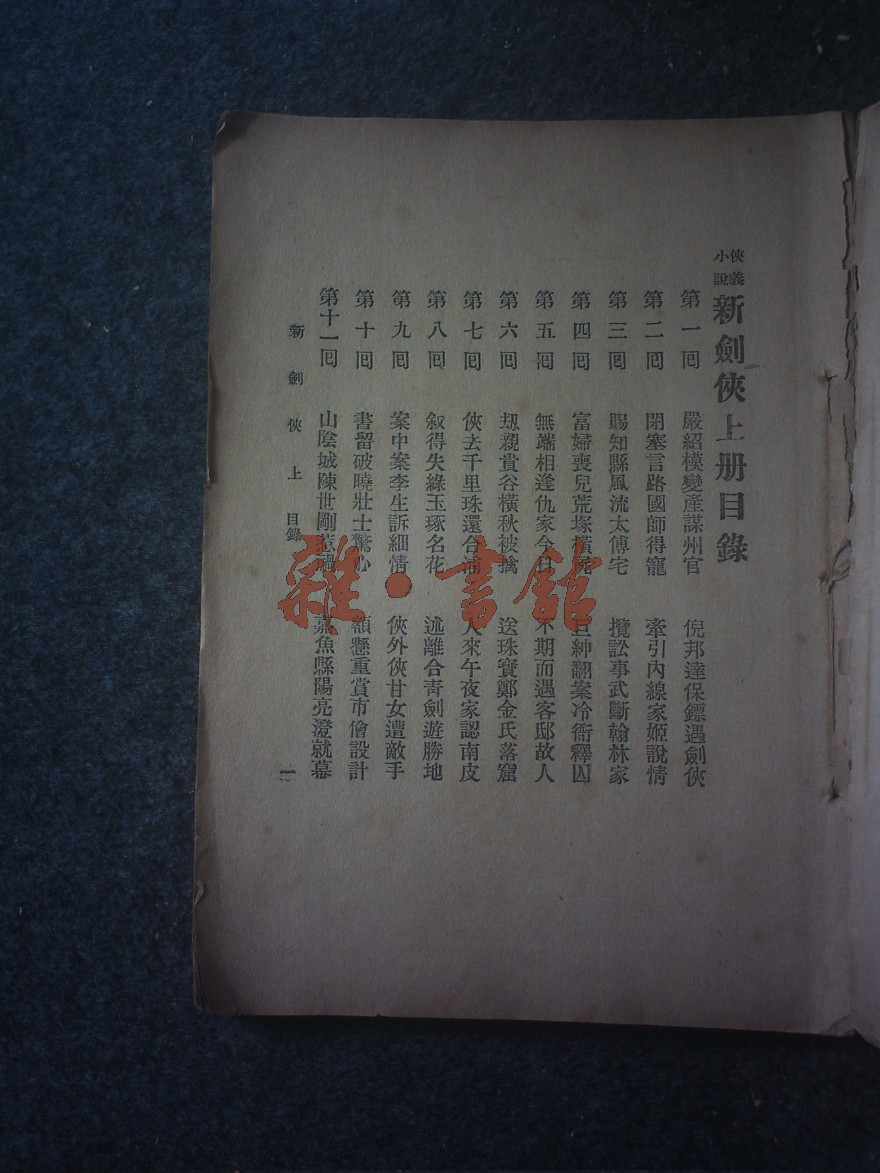 俠義小說 新劍俠上册目錄
第一囘 嚴紹模變產謀州官 倪邦達保鏢遇劍俠
第二囘 閉塞言路國師得寵 牽引內線家姬說情
第三囘 賜知縣風流太傅宅 攬訟事武斷翰林家
第四囘 富婦喪兒荒塚橫屍 巨紳翻案冷衙釋囚
第五囘 無端相逢仇家今日 不期而遇客邸故人
第六囘 刼親貴谷橫秋被擒 送珠寶鄭金氏落窟
第七囘 俠去千里珠還合浦 人來午夜家認南皮
第八囘 叙得失綠玉琢名花 述離合青劍遊勝地
第九囘 案中案李生訴細情 俠外俠甘女遭敵手
第十囘 書留破曉壯士驚心 額懸重賞市儈設計
第十一囘 山陰城陳世剛惹禍 嘉魚縣陽亮澄就幕
新劍俠上 目錄 一
雜·書館